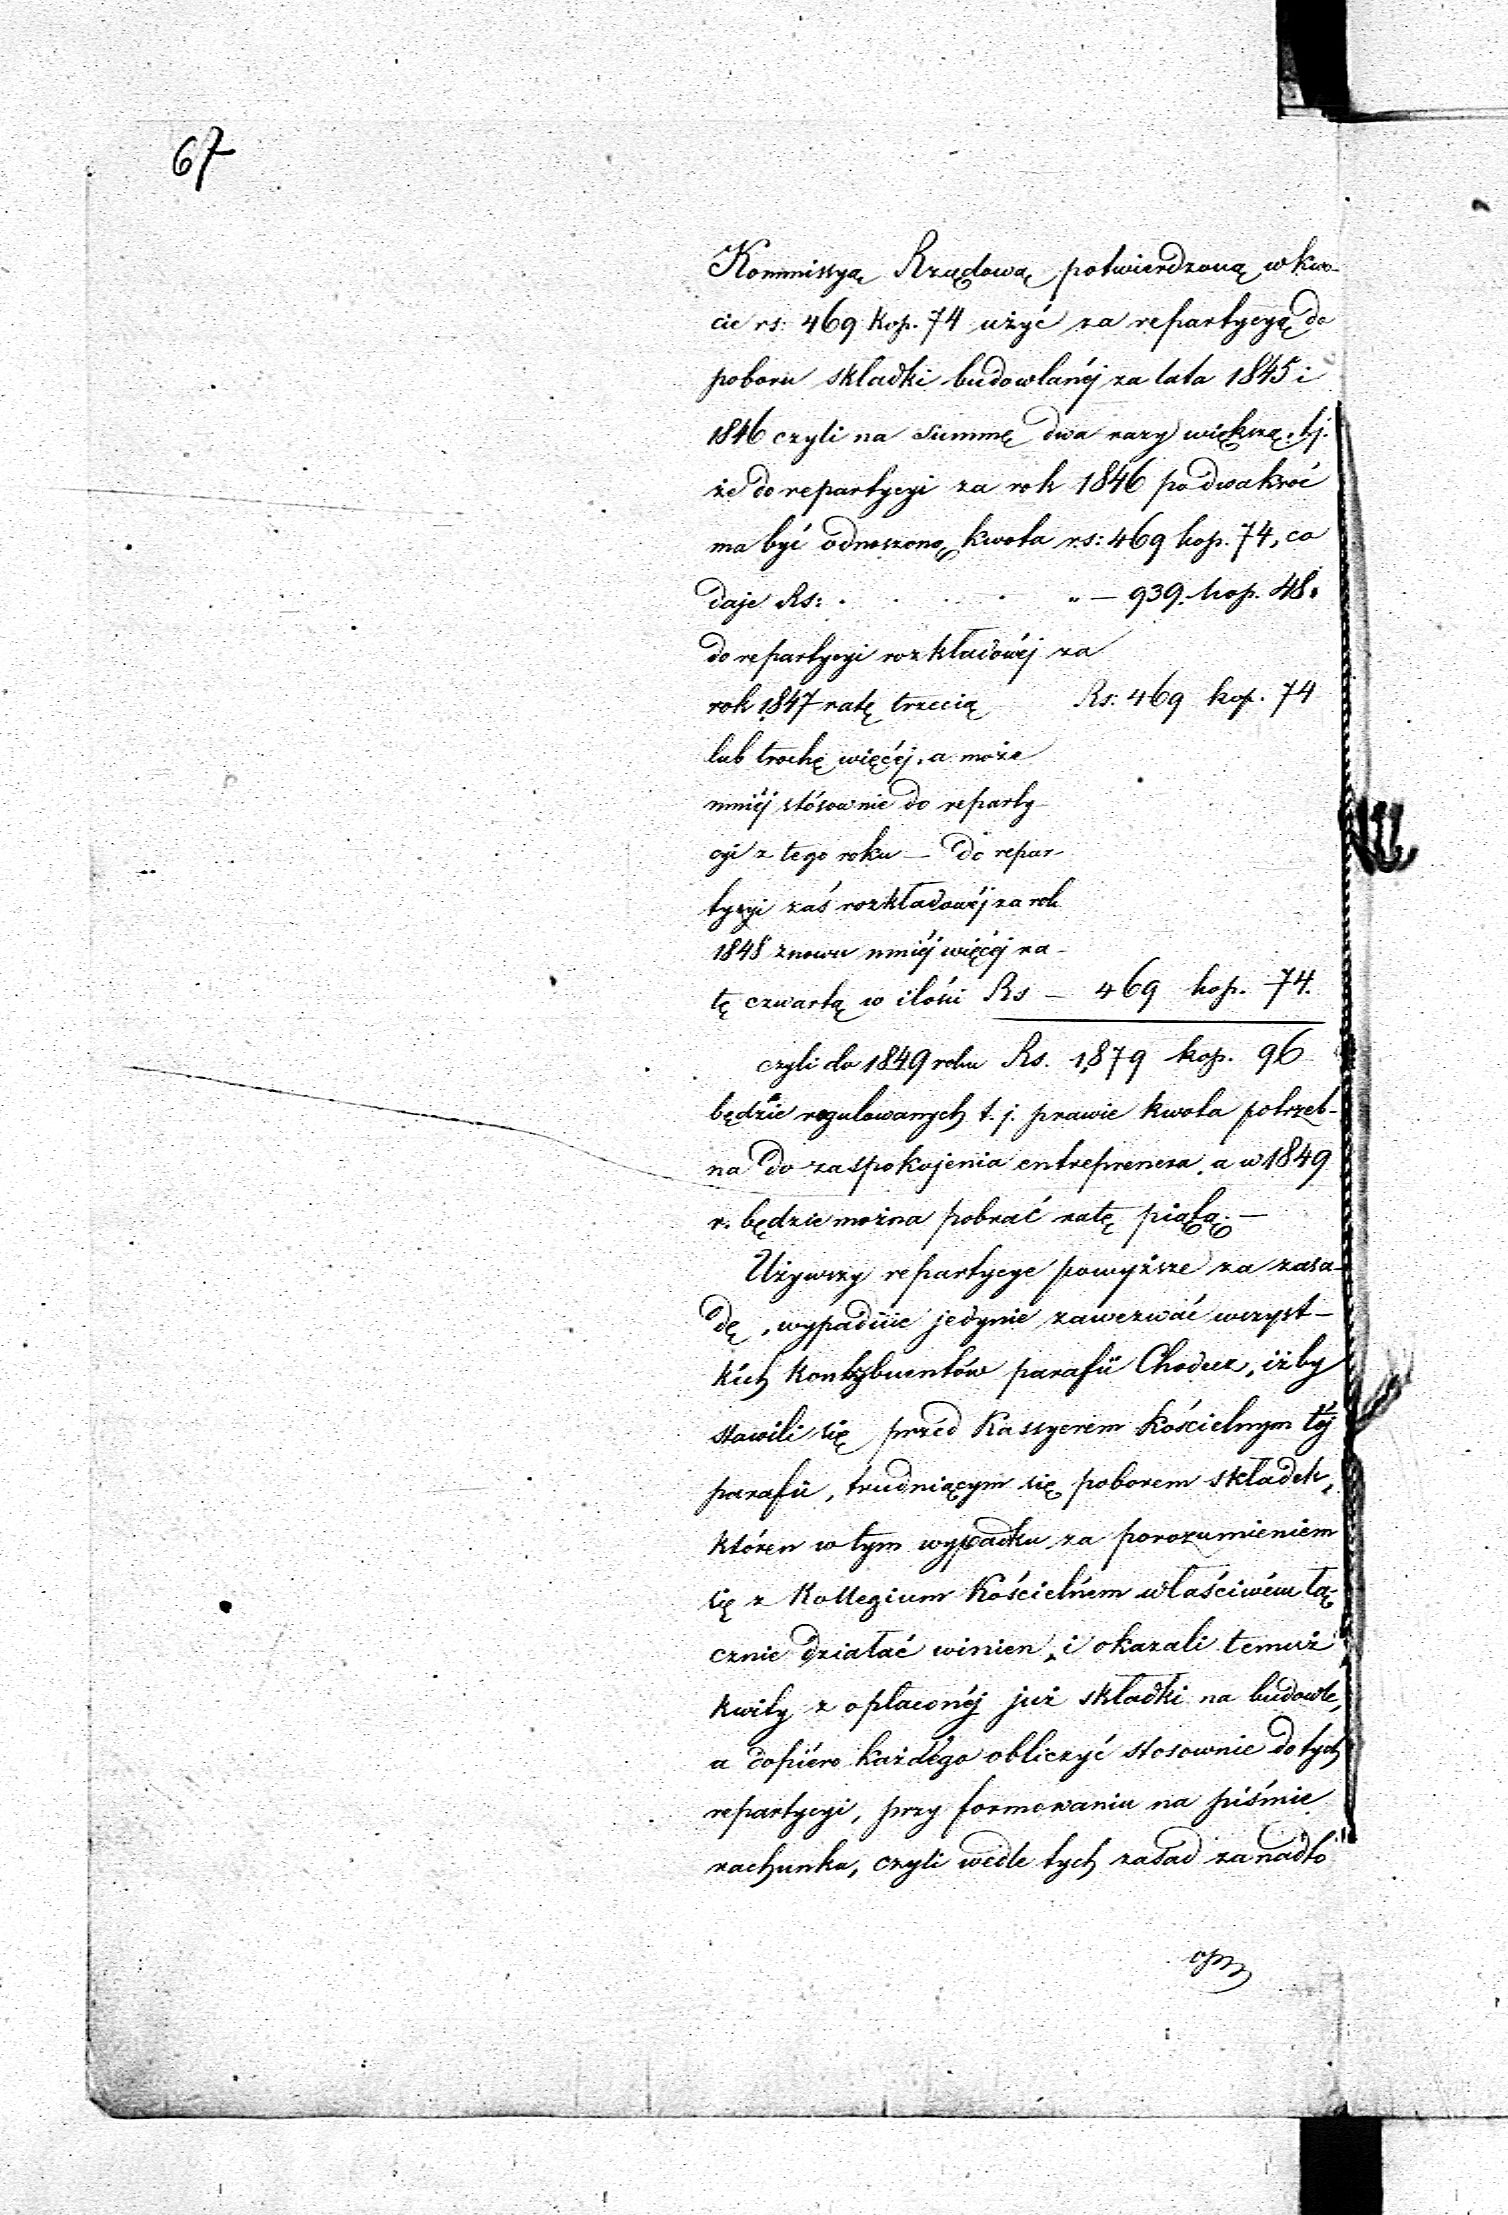 67
Kommissyą Rządową potwierdzoną w kwo-
cie rs: 469 kop. 74 użyć za repartycyą do
poboru składki budowlanéj za lata 1845 i
1846 czyli na summę dwa razy większą, tj.
że do repartycyi za rok 1846 po dwakroć
ma być odnoszoną kwota rs: 469 kop. 74, co
daje Rs: . . . . " — 939. kop. 48.
do repartycyi rozkładowéj za
rok 1847 ratę trzecią Rs: 469 kop. 74
lub trochę więcéj, a może
mniéj stósownie do reparty-
cyi z tego roku — do repar-
tycyi zaś rozkładowéj za rok
1848 znowu mniéj więcéj ra-
tę czwartą w ilości Rs — 469 kop. 74.
czyli do 1849 roku Rs. 1,879 kop. 96
będzie regulowanych t. j. prawie kwota potrzeb-
na do zaspokojenia entreprenera, a w 1849
r. będzie można pobrać ratę piątą. —
Używszy repartycye powyższe za zasa-
dę, wypadnie jedynie zawezwać wszyst-
kich kontrybuentów parafii Chodecz, iżby
stawili się przed Kassyerem kościelnym téj
parafii, trudniącym się poborem składek,
któren w tym wypadku za porozumieniem
się z Kollegium Kościelném właściwém łą-
cznie działać winien, i okazali temuż
kwity z opłaconéj już składki na budowle,
a dopiéro każdégo obliczyć stosownie do tych
repartycyi, przy formowaniu na piśmie
rachunku, czyli wedle tych zasad zanadto